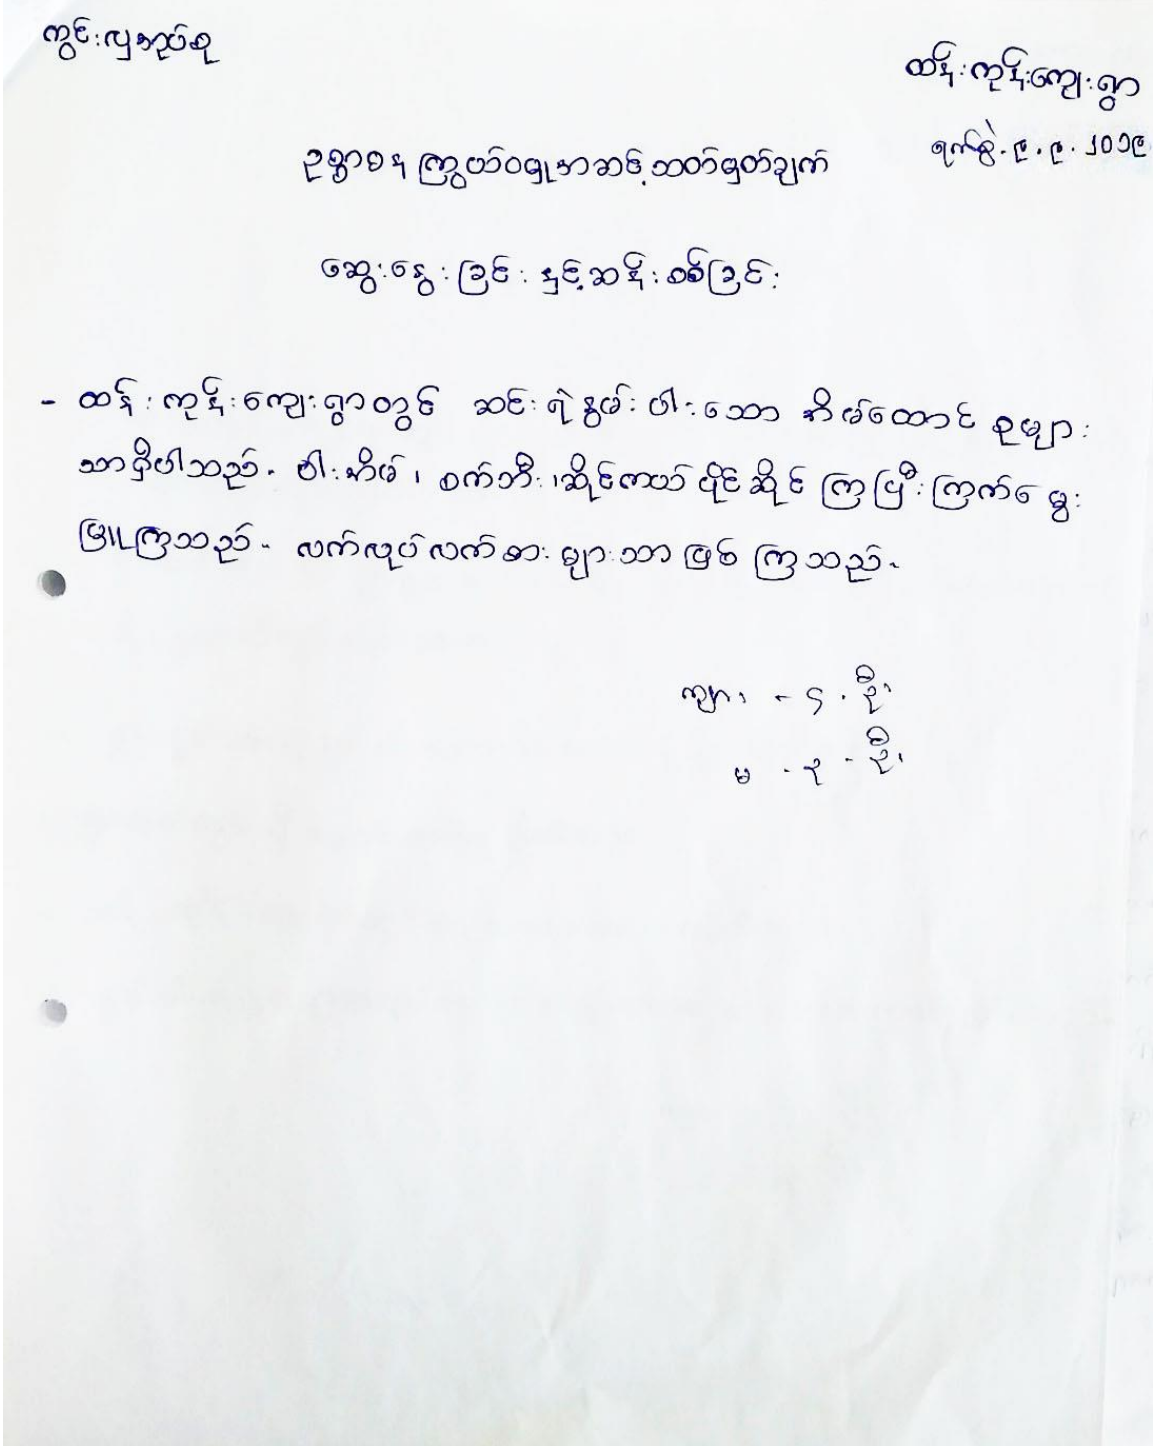 ကွင်းလှအုပ်စု
ထန်းကုန်းကျေးရွာ
ရက်စွဲ. ၉. ၉. ၂၀၁၉
ဥစ္စာဓန ကြွယ်ဝမှုအဆင့်သတ်မှတ်ချက်
ဆွေးနွေးခြင်း နှင့်ဆန်းစစ်ခြင်း
- ထန်းကုန်းကျေးရွာတွင် ဆင်းရဲနွမ်းပါးသော အိမ်ထောင်စုများ
သာရှိပါသည်. ဝါးအိမ်၊ စက်ဘီး၊ ဆိုင်ကယ် ပိုင်ဆိုင်ကြပြီး ကြက်မွေး
မြူကြသည်. လက်လုပ်လက်စားများသာ ဖြစ်ကြသည်.
ကျား - ၄ . ဦး
မ - ၃ - ဦး